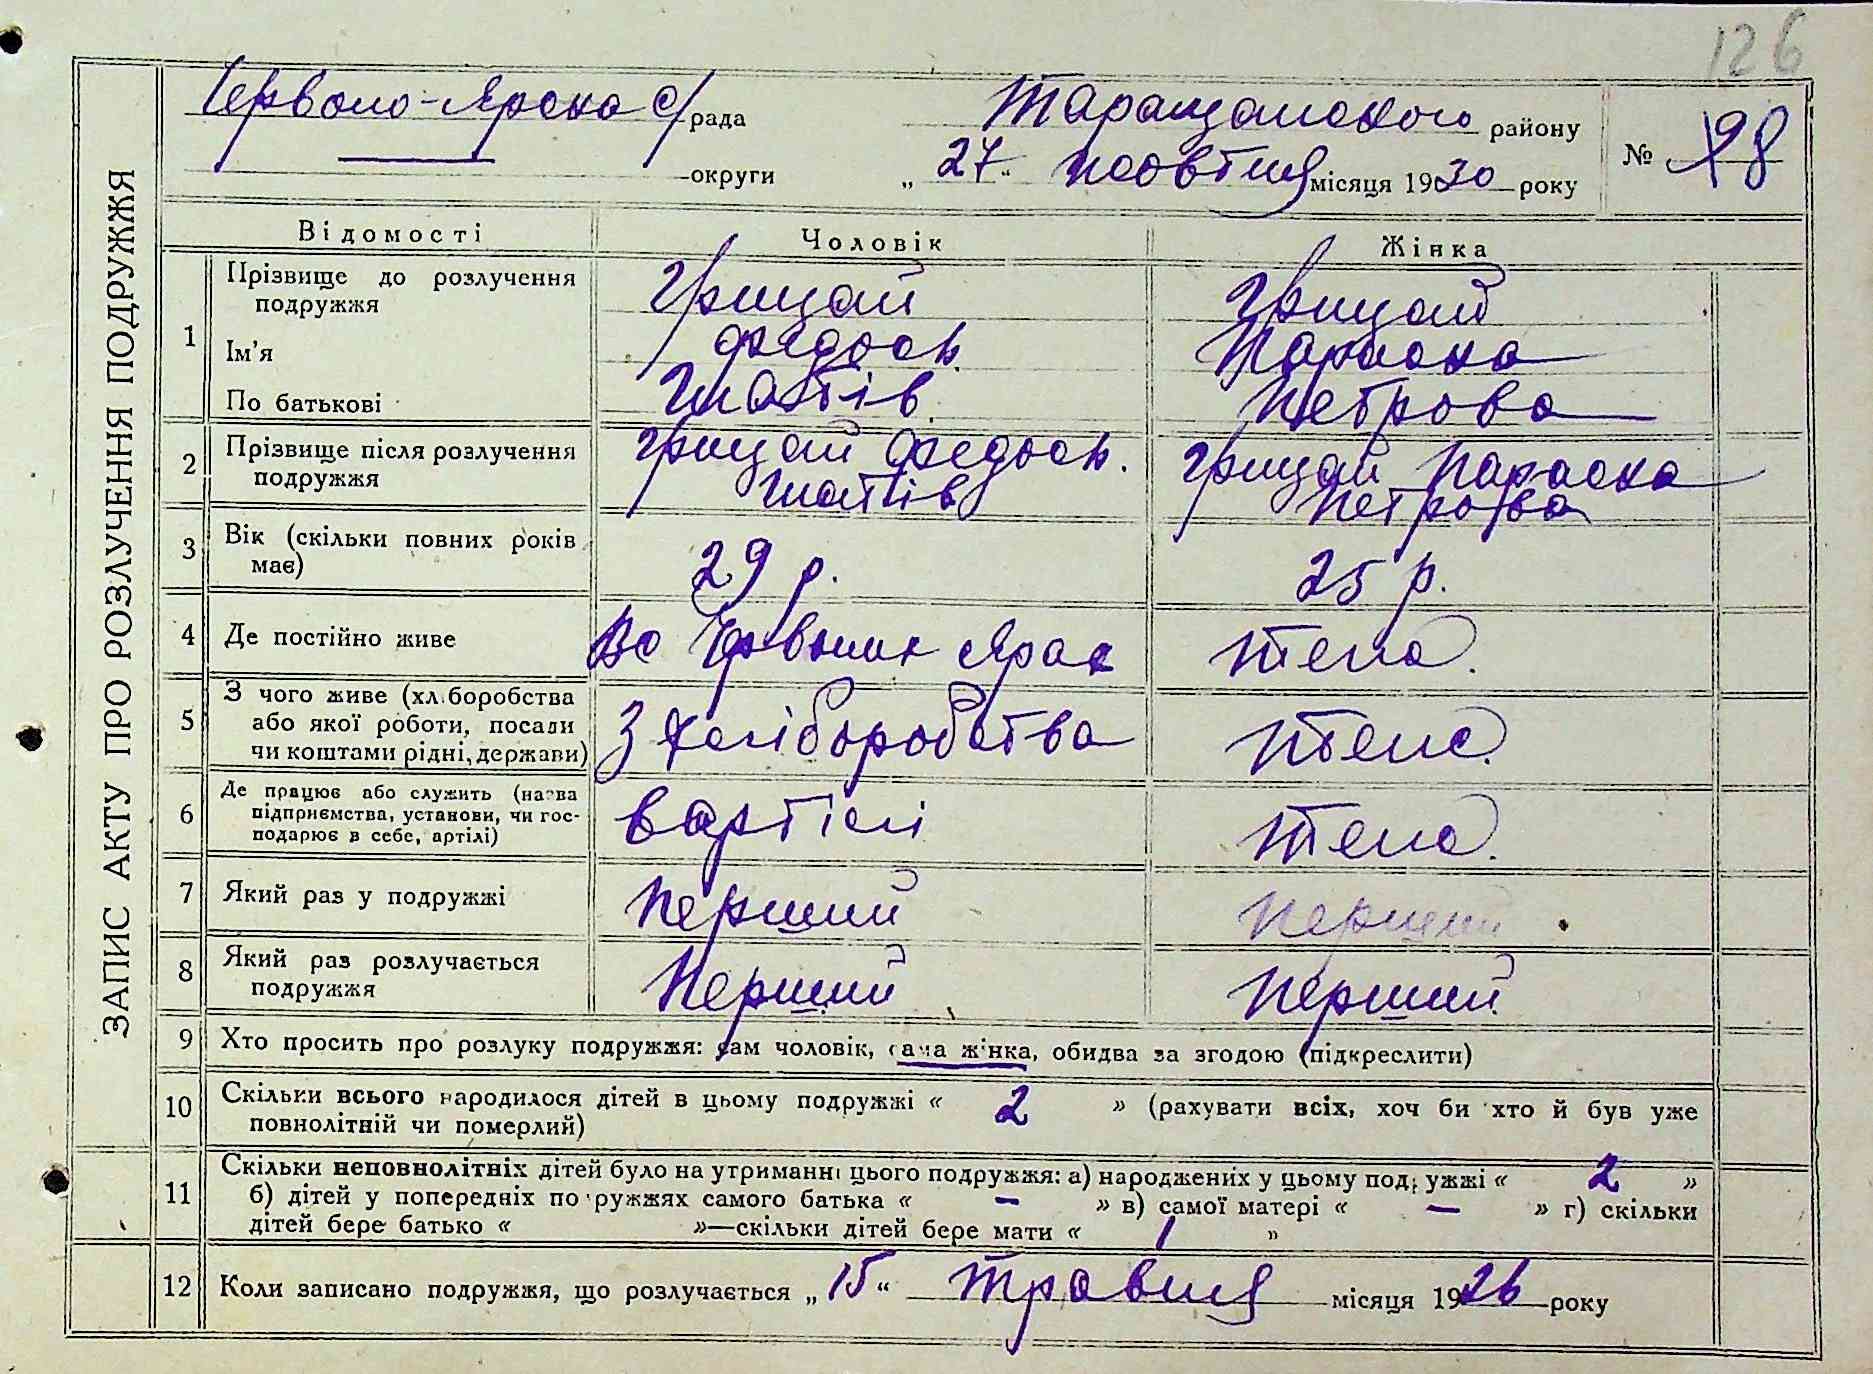 126
Червоно-Ярська с/рада Таращанського району
округи „27“ жовтня місяця 1930 року № 98
ЗАПИС АКТУ ПРО РОЗЛУЧЕННЯ ПОДРУЖЖЯ
Відомості Чоловік Жінка
1 Прізвище до розлучення подружжя Грицай Грицай
Ім'я Федось Параска
По батькові Гнатів Петрова
2 Прізвище після розлучення Грицай Федось. Грицай Параска
подружжя Гнатів Петрова
3 Вік (скільки повних років 29 р. 25 р.
має)
4 Де постійно живе Червоних Ярах тено.
5 З чого живе (хл.боробства
або якої роботи, посади З хліборобства тено.
чи коштами рідні, держави)
6 Де працює або служить (назва
підприємства, установи, чи гос- в артілі тено.
подарює в себе, артілі)
7 Який раз у подружжі перший перший
8 Який раз розлучається Перший перший
подружжя
9 Хто просить про розлуку подружжя: сам чоловік, сама жінка, обидва за згодою (підкреслити)
10 Скільки всього народилося дітей в цьому подружжі « 2 » (рахувати всіх, хоч би хто й був уже
повнолітній чи померлий)
11 Скільки неповнолітніх дітей було на утриманні цього подружжя: а) народжених у цьому подружжі « 2 »
б) дітей у попередніх подружжях самого батька « – » в) самої матері « – » г) скільки
дітей бере батько « »—скільки дітей бере мати « 1 »
12 Коли записано подружжя, що розлучається „15“ травня місяця 1926 року